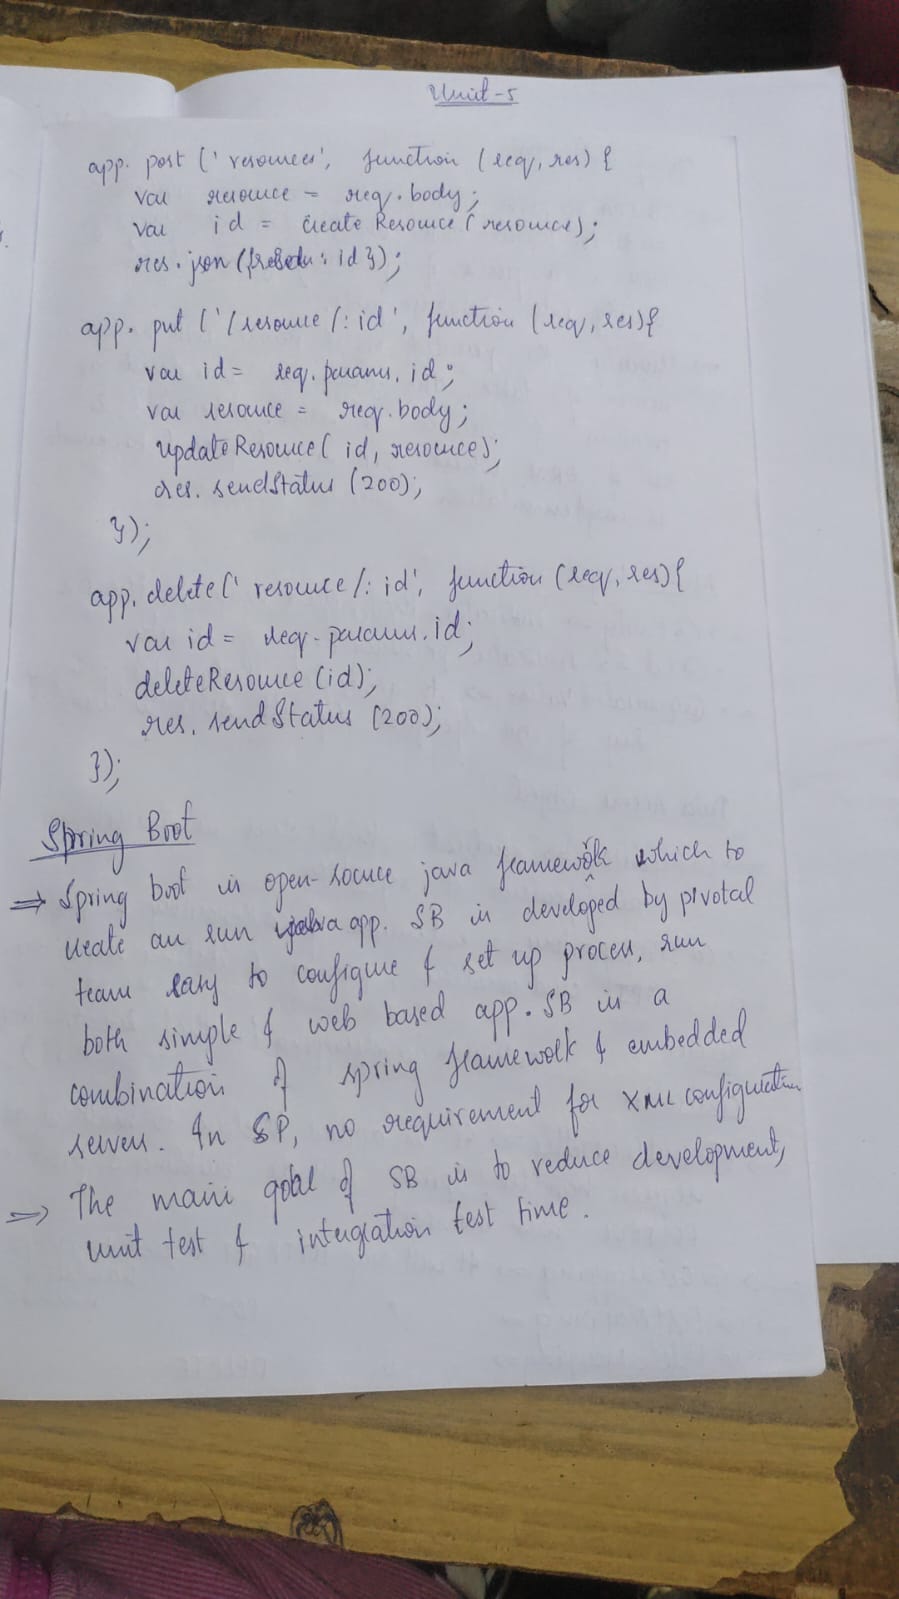 Unit-5
app. post (' resources', function (req, res) {
var resource = req. body;
var id = Create Resource (resource);
res. json ( : id });
app. put ('/resource /: id', function (req, res){
var id = req. params. id;
var resource = req. body;
updateResource( id, resource);
res. sendStatus (200);
});
app. delete(' resource /: id', function (req, res){
var id = req. params. id;
deleteResource (id);
res. sendStatus (200);
});
Spring Boot
⇒ Spring boot is open-source java framework which to
create an run java app. SB is developed by pivotal
team easy to configure & set up process, run
both simple & web based app. SB is a
combination of spring framework & embedded
servers. In SP, no requirement for XML configuration
⇒ The main goal of SB is to reduce development,
unit test & integration test time.